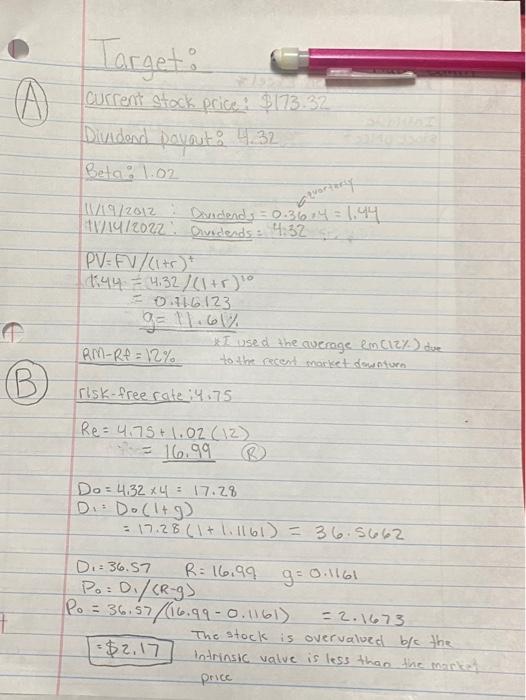 Target:
A
Current stock price: $173.32
Dividend payout: 4.32
Beta: 1.02
quarterly
11/19/2012 : Dividends = 0.36 x 4 = 1.44
11/14/2022: Dividends = 4.32
PV = FV/(1+r)^t
1.44 = 4.32/(1+r)^10
= 0.116123
g = 11.61%
*I used the average Rm (12%) due
RM-Rf = 12% to the recent market downturn
B
risk-free rate: 4.75
Re = 4.75 + 1.02 (12)
= 16.99 (R)
Do = 4.32 x 4 = 17.28
D1 = Do (1+g)
= 17.28 (1 + 1.1161) = 36.5662
D1 = 36.57 R = 16.99 g = 0.1161
Po = D1/(R-g)
Po = 36.57/(16.99 - 0.1161) = 2.1673
= $2.17 The stock is overvalued b/c the
intrinsic value is less than the market
price